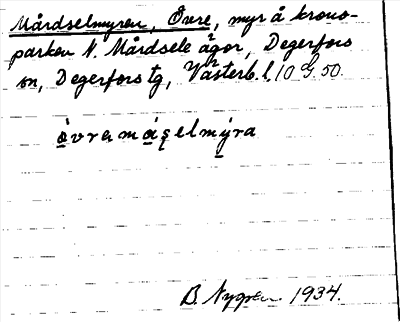 Mårdselmyren, Övre, myr å krono-
parken N. Mårdsele ägor, Degerfors
sn, Degerfors tg, Västerb. l. 10 G 50.
B. Nygren 1934.